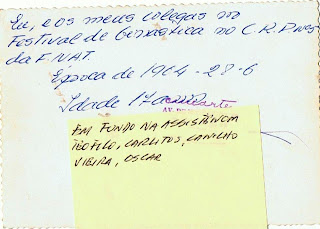 Eu, e os meus colegas no
Festival de Ginástica no C.R.P.
da F.NAT.
Época de 1964-28-6
Idade 17 anos
EM FUNDO NA ASSISTÊNCIA
TEÓFILO, CARLITOS, CANILHO
VIEIRA, OSCAR